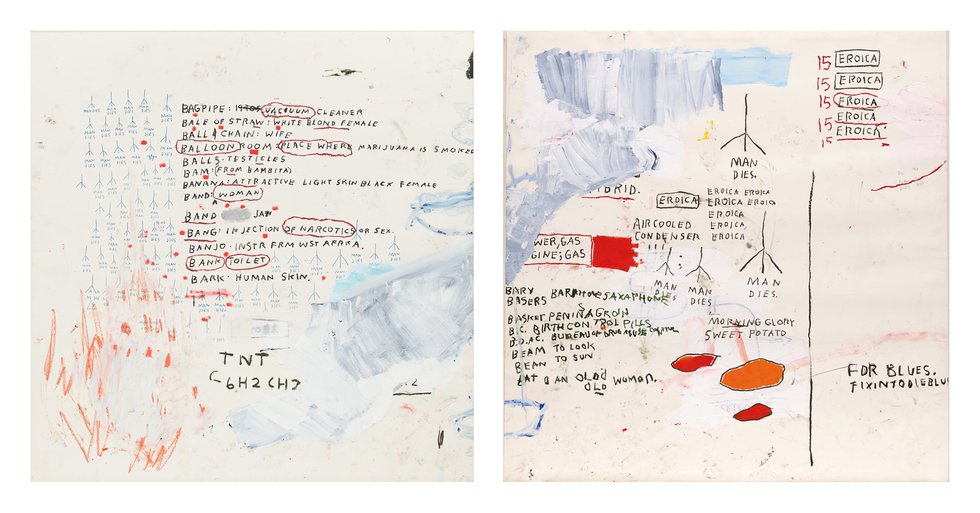 BAGPIPE: VACUUM CLEANER
BALE OF STRAW: WHITE BLOND FEMALE
BALL & CHAIN: WIFE
BALLOON ROOM: PLACE WHERE MARIJUANA IS SMOKED
BALLS: TESTICLES
BAM: (FROM BAMBITA)
BANANA: ATTRACTIVE LIGHT SKIN BLACK FEMALE
BAND: WOMAN
BAND
BANG: INJECTION OF NARCOTICS OR SEX.
BANJO: INSTR FRM WST AFRIKA.
BANK: TOILET
BARK: HUMAN SKIN.
MAN DIES
TNT
C6H2CH3
15 EROICA
15 EROICA
15 EROICA
15 EROICA
15
MAN
DIES.
HYBRID.
EROICA
EROICA EROICA
EROICA EROICA
EROICA
EROICA
EROICA
AIR COOLED
CONDENSER
WER, GAS
GINE; GAS
MAN
DIES
MAN
DIES
MAN
DIES.
BARY
BASERS BARITONE SAXAPHONE
BASKET PENINAGRON
B.C. BIRTH CONTROL PILLS
B.D.A.C. BUREAU OF DRUG ABUSE CONTROL
BEAM TO LOOK
BEAN TO SUN
EAT AN OLD
OLD WOMAN.
MORNING GLORY
SWEET POTATO
FOR BLUES.
FIXINTODIEBLU